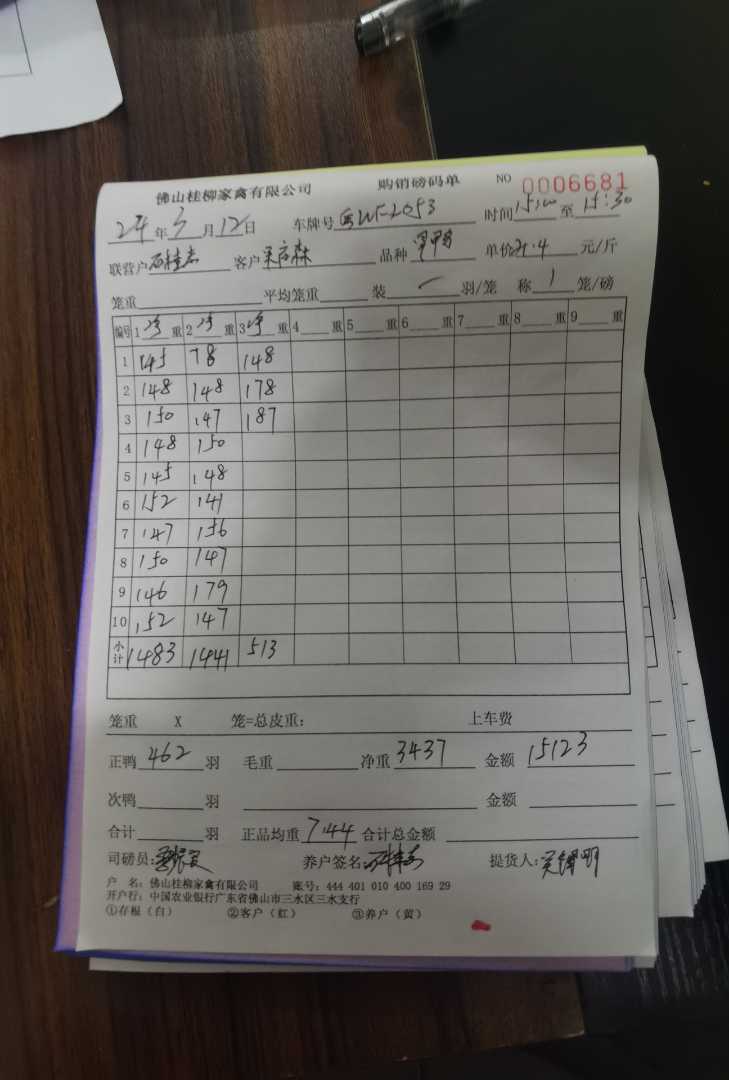 佛山桂柳家禽有限公司 购销磅码单 NO 0006681
24年3月12日 车牌号 WF2053 时间15:00至15:30
联营户 客户 品种 单价4.4元/斤
笼重 平均笼重 装一羽/笼 称1笼/磅
编号 1净重 2净重 3净重 4重 5重 6重 7重 8重 9重
1 145 78 148
2 148 148 178
3 150 147 187
4 148 150
5 145 148
6 152 141
7 147 156
8 150 147
9 146 179
10 152 147
小计 1483 1441 513
笼重 X 笼=总皮重: 上车费
正鸭462羽 毛重 净重3437 金额15123
次鸭 羽 金额
合计 羽 正品均重7.44 合计总金额
司磅员: 养户签名: 提货人:
户 名: 佛山桂柳家禽有限公司 账号: 444 401 010 400 169 29
开户行: 中国农业银行广东省佛山市三水区三水支行
①存根(白) ②客户(红) ③养户(黄)